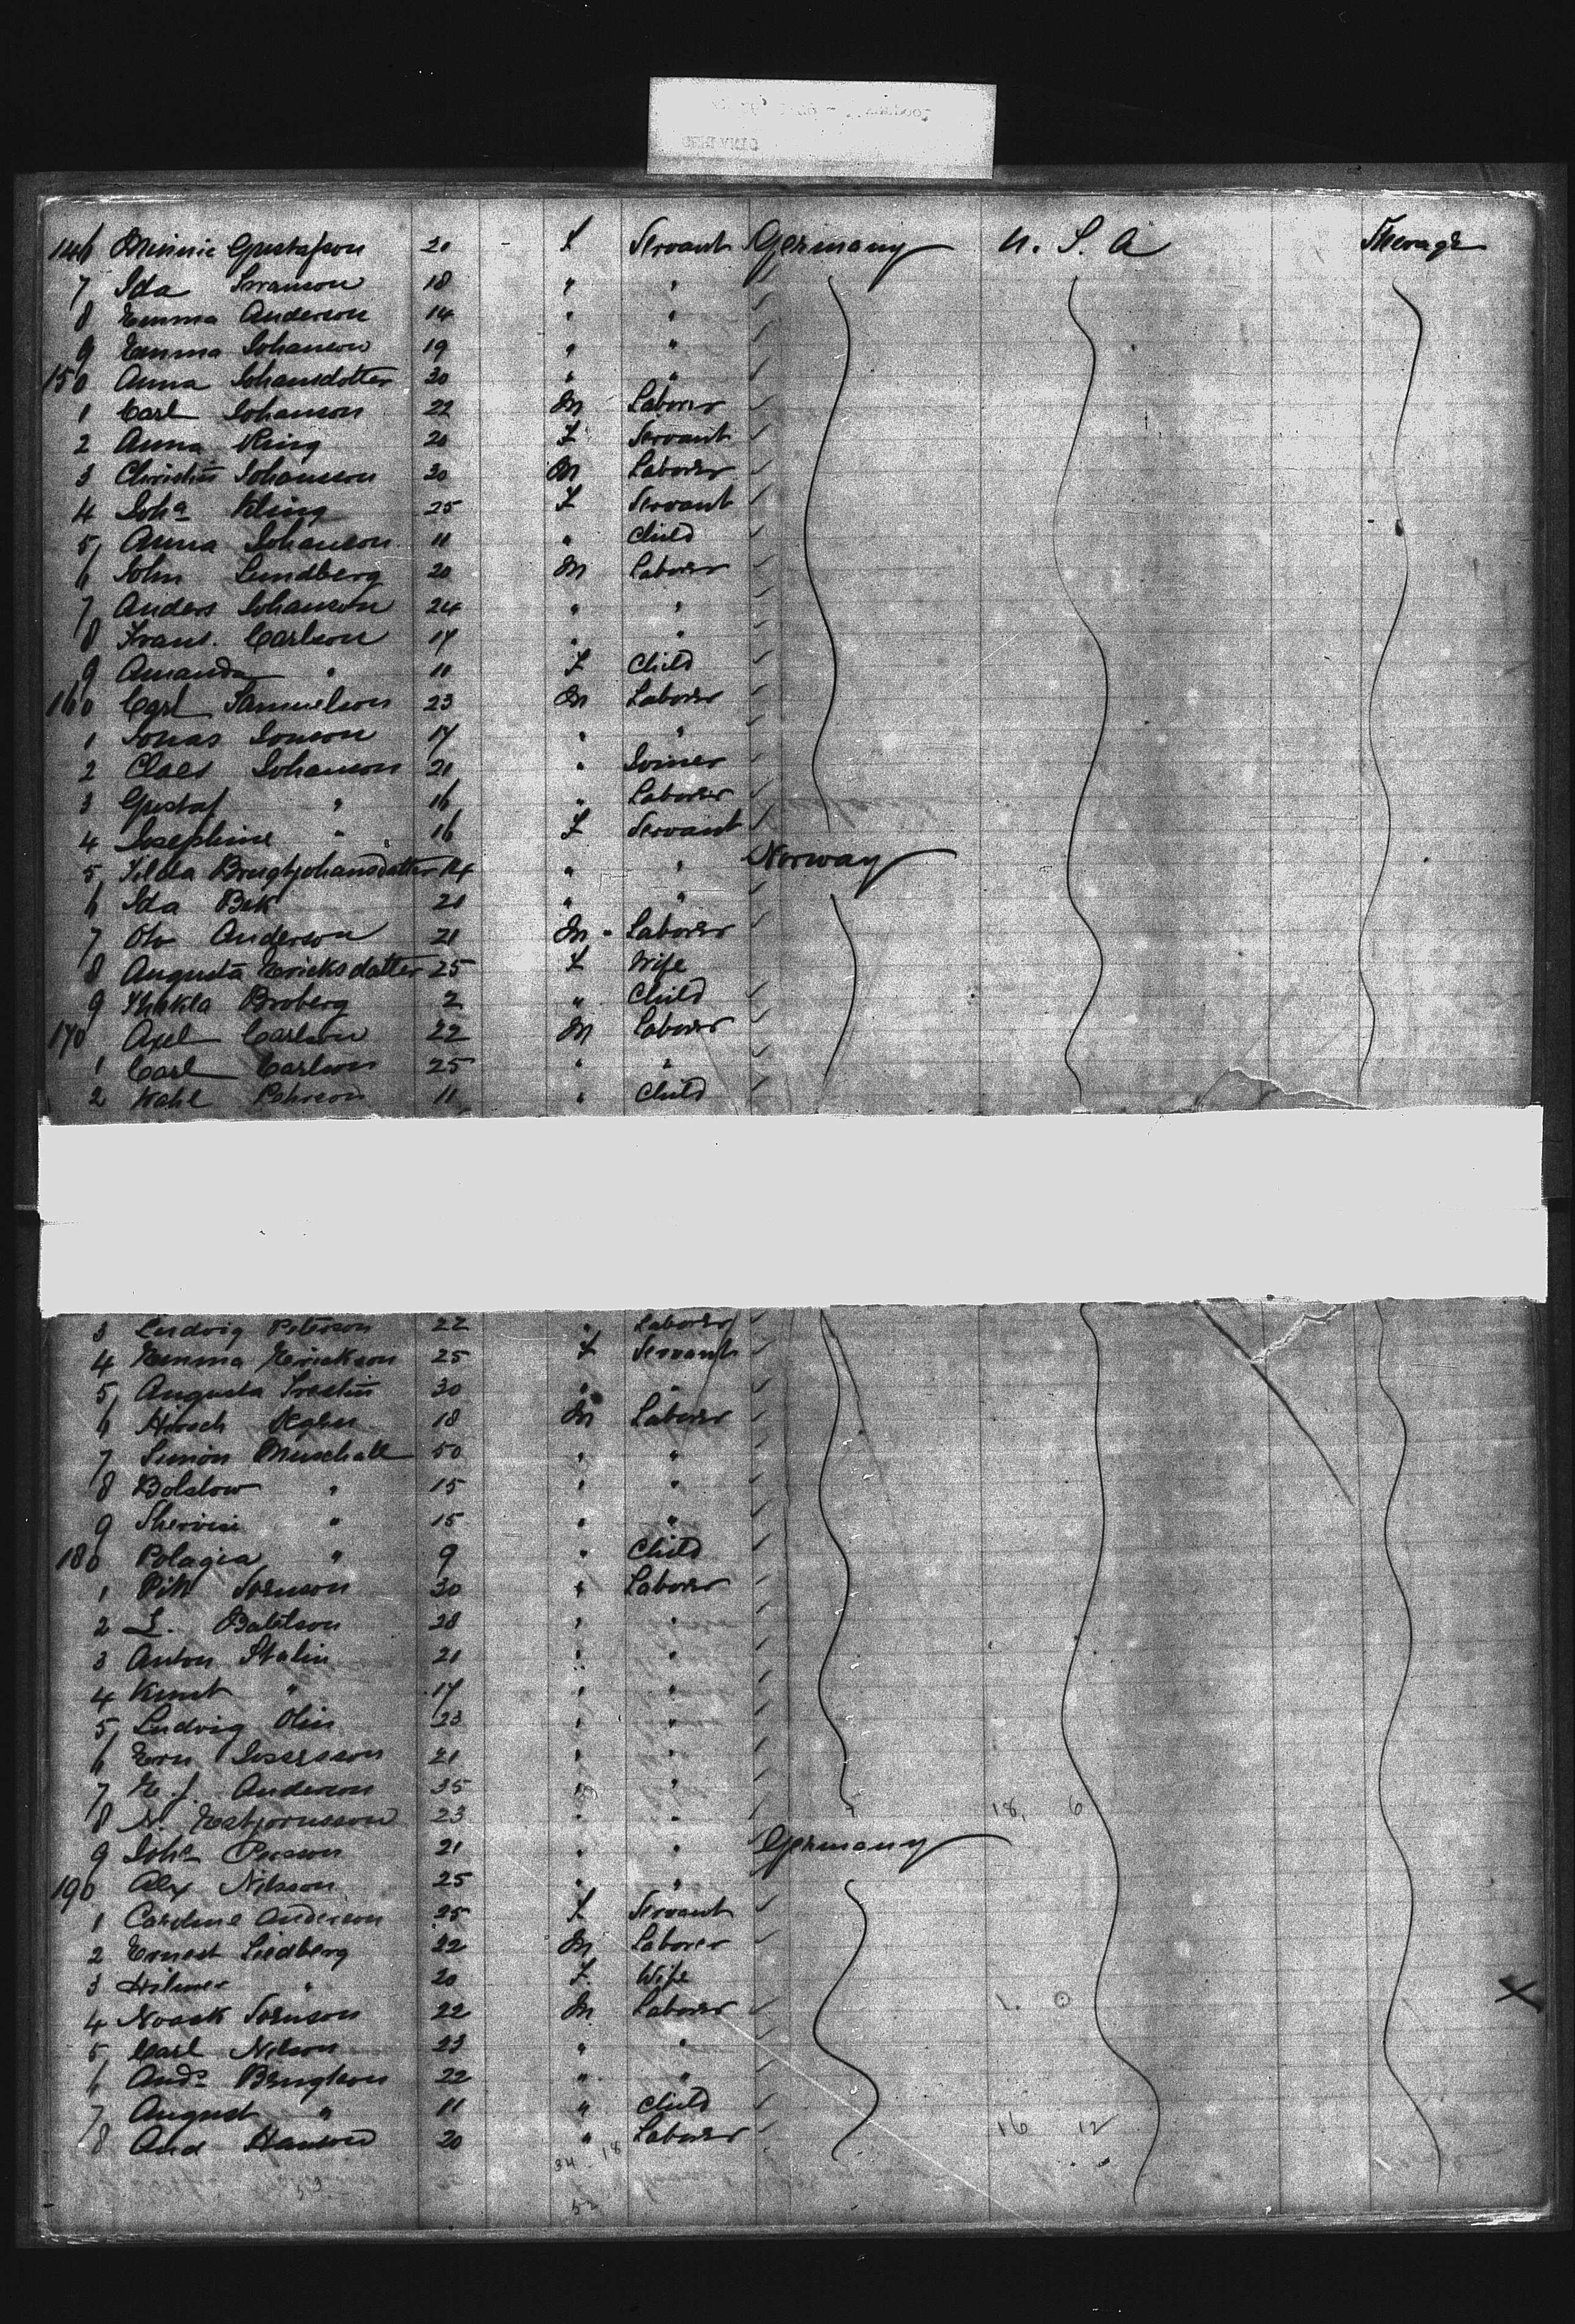 146 Minnie Gustafson 20 F Servant Germany U. S. A Steerage
7 Ida Swanson 18 " "
8 Emma Anderson 14 " "
9 Emma Johanson 19 " "
150 Anna Johansdotter 30 " "
1 Carl Johanson 22 M Laborer
2 Anna King 20 F Servant
3 Christin Johansson 30 M Laborer
4 Joha Kling 25 F Servant
5 Anna Johanson 11 " Child
6 John Lundberg 20 M Laborer
7 Anders Johanson 24 " "
8 Frans. Carlson 17 " "
9 Amanda " 10 F Child
160 Carl Samuelson 23 M Laborer
1 Jonas Jonson 17 " "
2 Claes Johanson 21 " Joiner
3 Gustaf " 16 " Laborer
4 Josephine " 16 F Servant
5 Brughjohansdatter 14 " " Norway
6 Ida Bek 21 " "
7 Anderson 21 M Laborer
8 Augusta Ericksdatter 25 F Wife
9 Thekla Broberg 2 " Child
170 Axel Carlson 22 M Laborer
1 Carl Carlson 25 " "
2 11 " Child
3 Ludvig Peterson 22 " Laborer
4 Emma Erickson 25 F Servant
5 Augusta 30 " "
6 Hirsch 18 M Laborer
7 Simon Muschall 50 " "
8 Bolslow " 15 " "
9 " 15 " "
180 Polagia " 9 " Child
1 30 " Laborer
2 L. 28 " "
3 Anton Stalin 21 " "
4 Knut " 17 " "
5 Ludvig Olin 23 " "
6 21 " "
7 Anderson 35 " "
8 N. Esbjornsson 23 " " 18, 6
9 Joha Person 21 " " Germany
190 Alex Nilsson 25 " "
1 Caroline Anderson 25 F Servant
2 Ernest Liedberg 22 M Laborer
3 " 20 F. Wife X
4 22 M Laborer
5 Carl Nelson 23 " "
6 Ands Bengtson 22 " "
7 August " 11 " Child
8 And Hanson 20 " Laborer 16 12
34 18
52